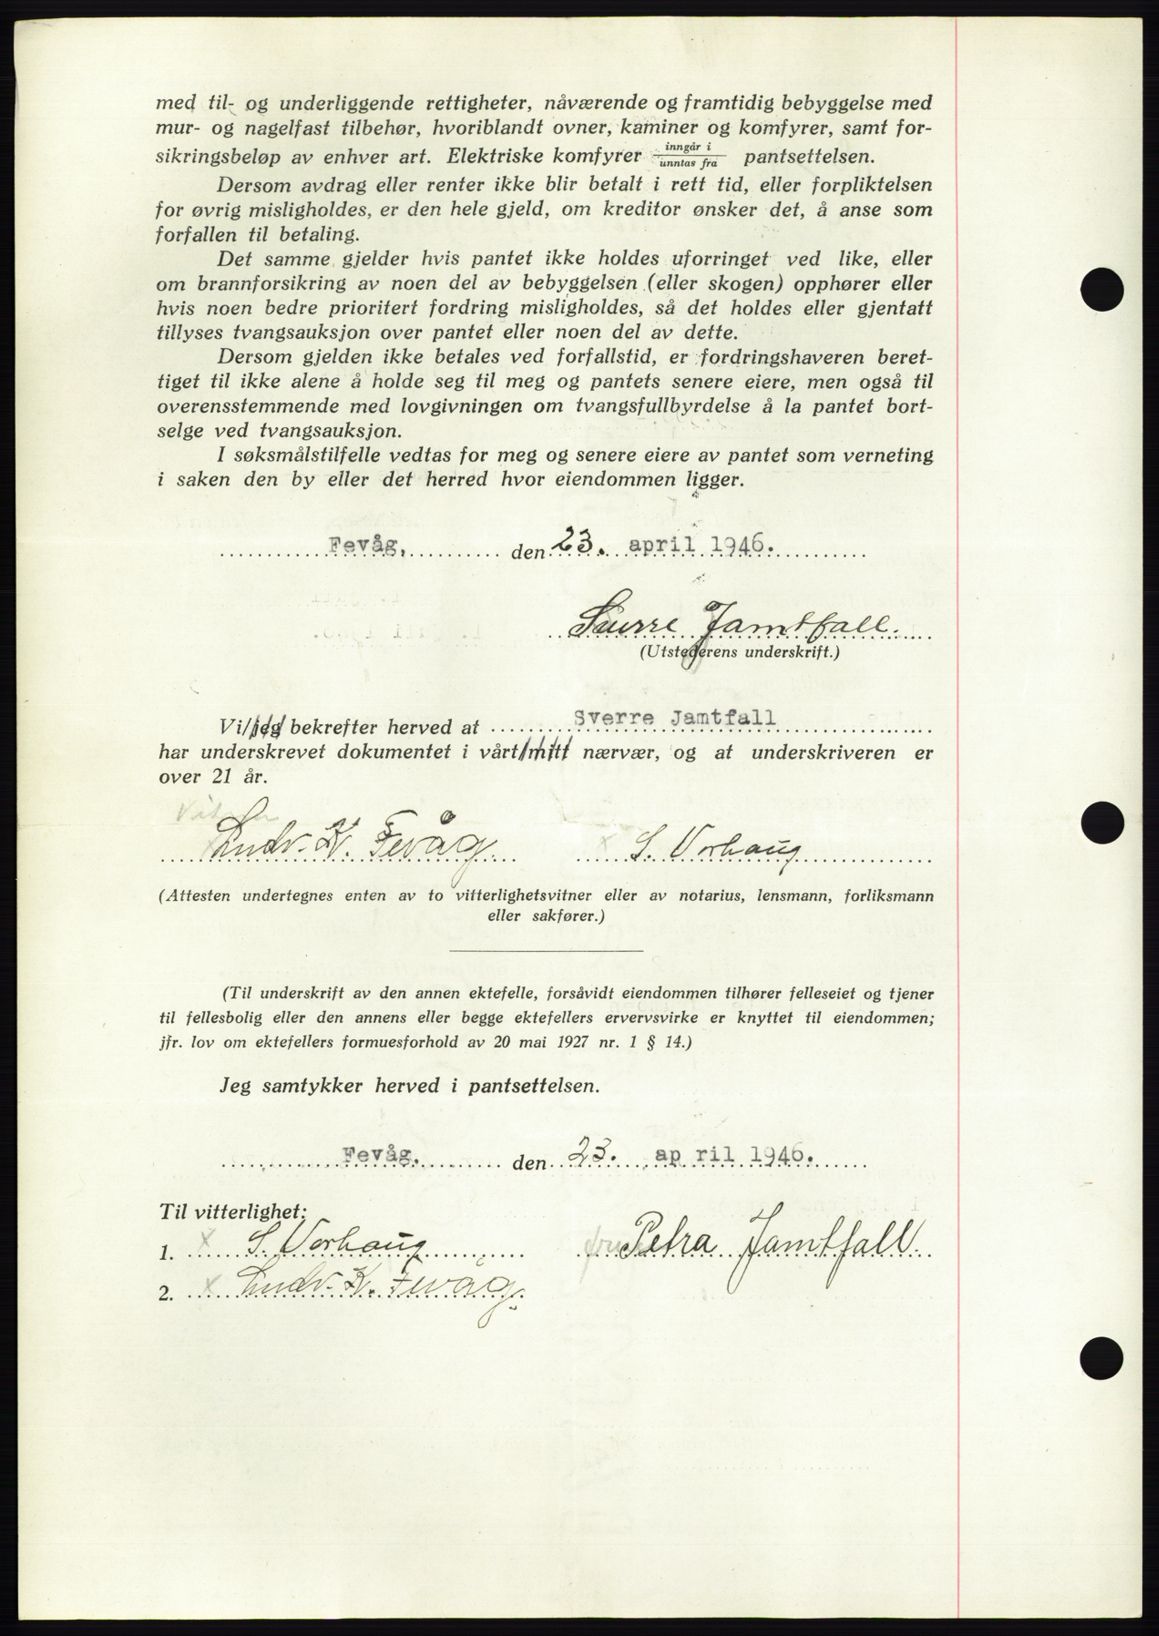 med til- og underliggende rettigheter, nåværende og framtidig bebyggelse med
mur- og nagelfast tilbehør, hvoriblandt ovner, kaminer og komfyrer, samt for-
sikringsbeløp av enhver art. Elektriske komfyrer inngår i / unntas fra pantsettelsen.
Dersom avdrag eller renter ikke blir betalt i rett tid, eller forpliktelsen
for øvrig misligholdes, er den hele gjeld, om kreditor ønsker det, å anse som
forfallen til betaling.
Det samme gjelder hvis pantet ikke holdes uforringet ved like, eller
om brannforsikring av noen del av bebyggelsen (eller skogen) opphører eller
hvis noen bedre prioritert fordring misligholdes, så det holdes eller gjentatt
tillyses tvangsauksjon over pantet eller noen del av dette.
Dersom gjelden ikke betales ved forfallstid, er fordringshaveren beret-
tiget til ikke alene å holde seg til meg og pantets senere eiere, men også til
overensstemmende med lovgivningen om tvangsfullbyrdelse å la pantet bort-
selge ved tvangsauksjon.
I søksmålstilfelle vedtas for meg og senere eiere av pantet som verneting
i saken den by eller det herred hvor eiendommen ligger.
Fevåg, den 23. april 1946.
Sverre Jamtfall.
(Utstederens underskrift.)
Vi/jeg bekrefter herved at Sverre Jamtfall
har underskrevet dokumentet i vårt/mitt nærvær, og at underskriveren er
over 21 år.
Ludv. K. Fevåg x S. Vorhaug
(Attesten undertegnes enten av to vitterlighetsvitner eller av notarius, lensmann, forliksmann
eller sakfører.)
(Til underskrift av den annen ektefelle, forsåvidt eiendommen tilhører felleseiet og tjener
til fellesbolig eller den annens eller begge ektefellers ervervsvirke er knyttet til eiendommen;
jfr. lov om ektefellers formuesforhold av 20 mai 1927 nr. 1 § 14.)
Jeg samtykker herved i pantsettelsen.
Fevåg, den 23. ap ril 1946.
Til vitterlighet:
1. x S. Vorhaug Petra Jamtfall
2. x Ludv. K. Fevåg.